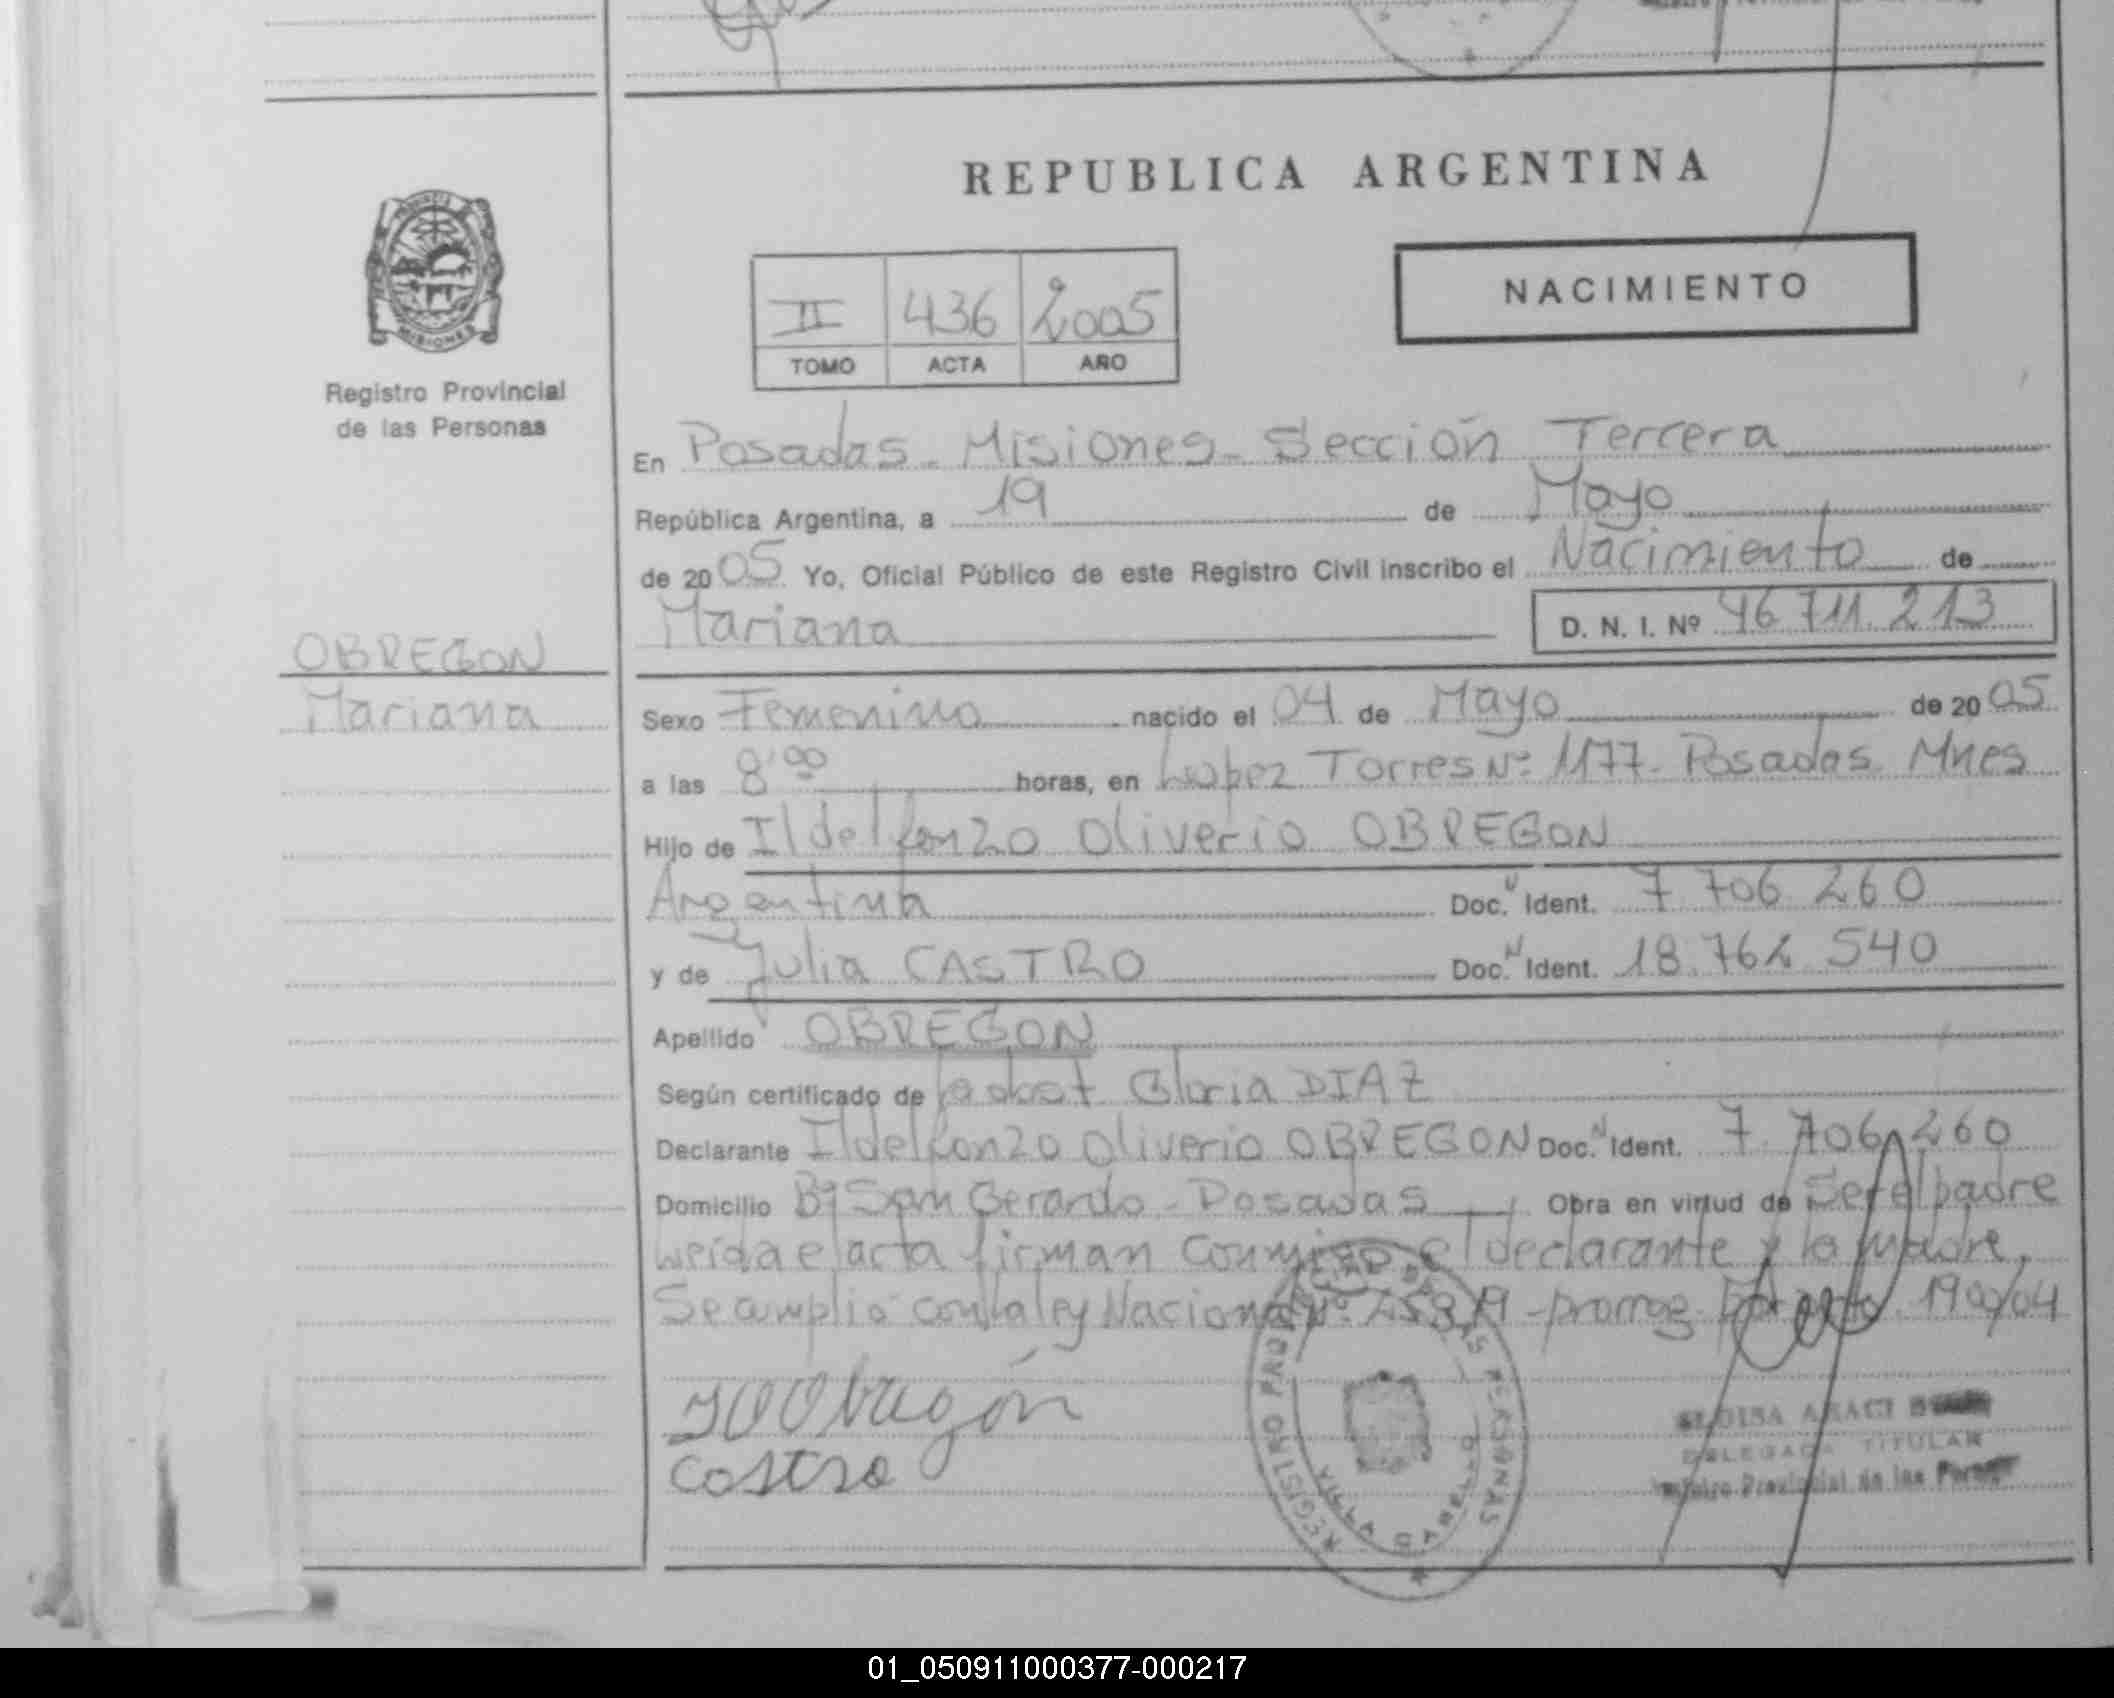 REPUBLICA ARGENTINA
NACIMIENTO
II 436 2005
TOMO ACTA AÑO
PROVINCIA DE MISIONES
Registro Provincial
de las Personas
OBREGON
Mariana
En Posadas - Misiones - Sección Tercera
República Argentina, a 19 de Mayo
de 2005 Yo, Oficial Público de este Registro Civil inscribo el Nacimiento de
Mariana D. N. I. Nº 46 711 213
Sexo Femenino nacido el 04 de Mayo de 2005
a las 8'00 horas, en Lopez Torres Nº 1177 - Posadas Mnes
Hijo de Ildelfonzo Oliverio OBREGON
Argentina Doc. N Ident. 7 706 260
y de Julia CASTRO Doc. N Ident. 18.762 540
Apellido OBREGON
Según certificado de Gloria DIAZ
Declarante Ildelfonzo Oliverio OBREGON Doc. N Ident. 7.706 260
Domicilio Bº San Gerardo - Posadas Obra en virtud de Ser el padre
Leída el acta firman conmigo el declarante y la madre.
Se cumplió con la ley Nacional Nº - prorrog. 190/04
Castro
REGISTRO PROVINCIAL DE LAS PERSONAS
VILLA CABELLO
DELEGADA TITULAR
Registro Provincial de las Personas
01_050911000377-000217